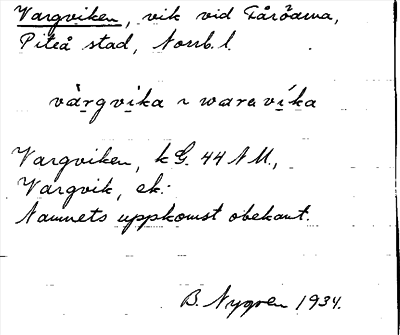 Vargviken, vik vid Fåröarna,
Piteå stad, Norrb. l.
vàrgvika ~ waravíka
Vargviken, kG. 44 NU.,
Vargvik, ek.
Namnets uppkomst obekant.
B. Nygren 1934.